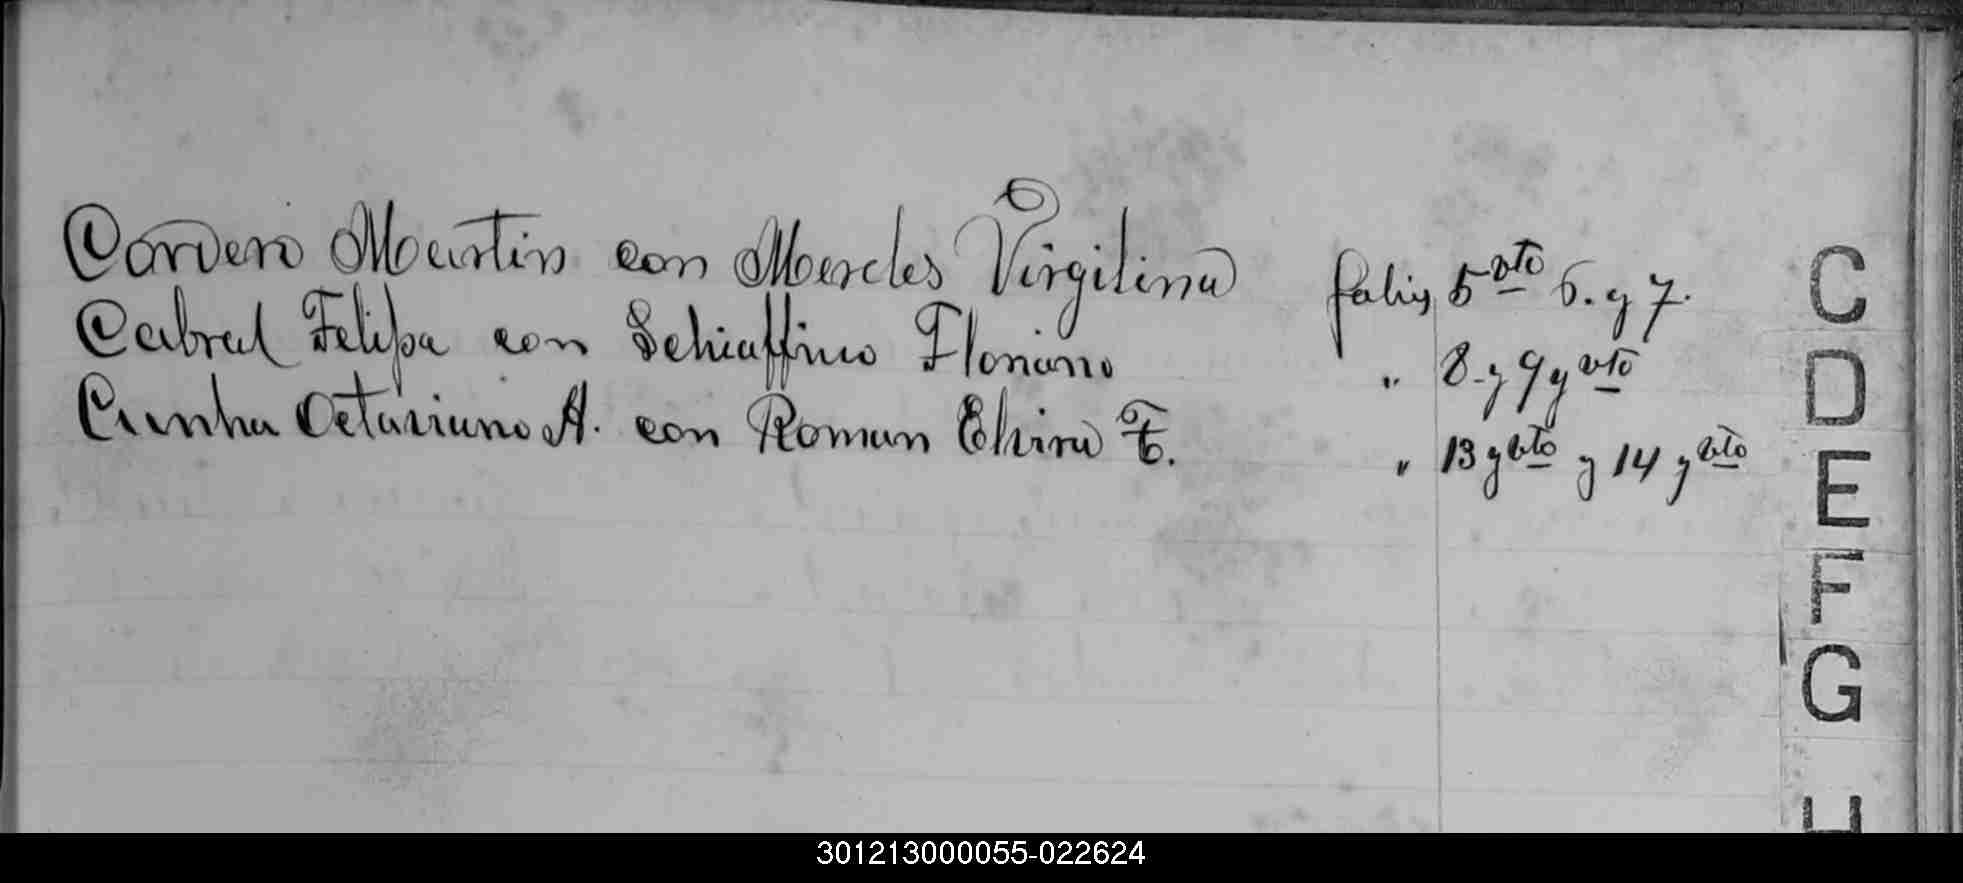 Corvero Martin con Mercles Virgilina folio 5 vto 6. y 7.
Cabral Felipa con Schiaffino Floriano " 8. y 9 y vto
Cunha Octaviano A. con Roman Elvira F. " 13 y vto y 14 y vto
C
D
E
F
G
H
301213000055-022624